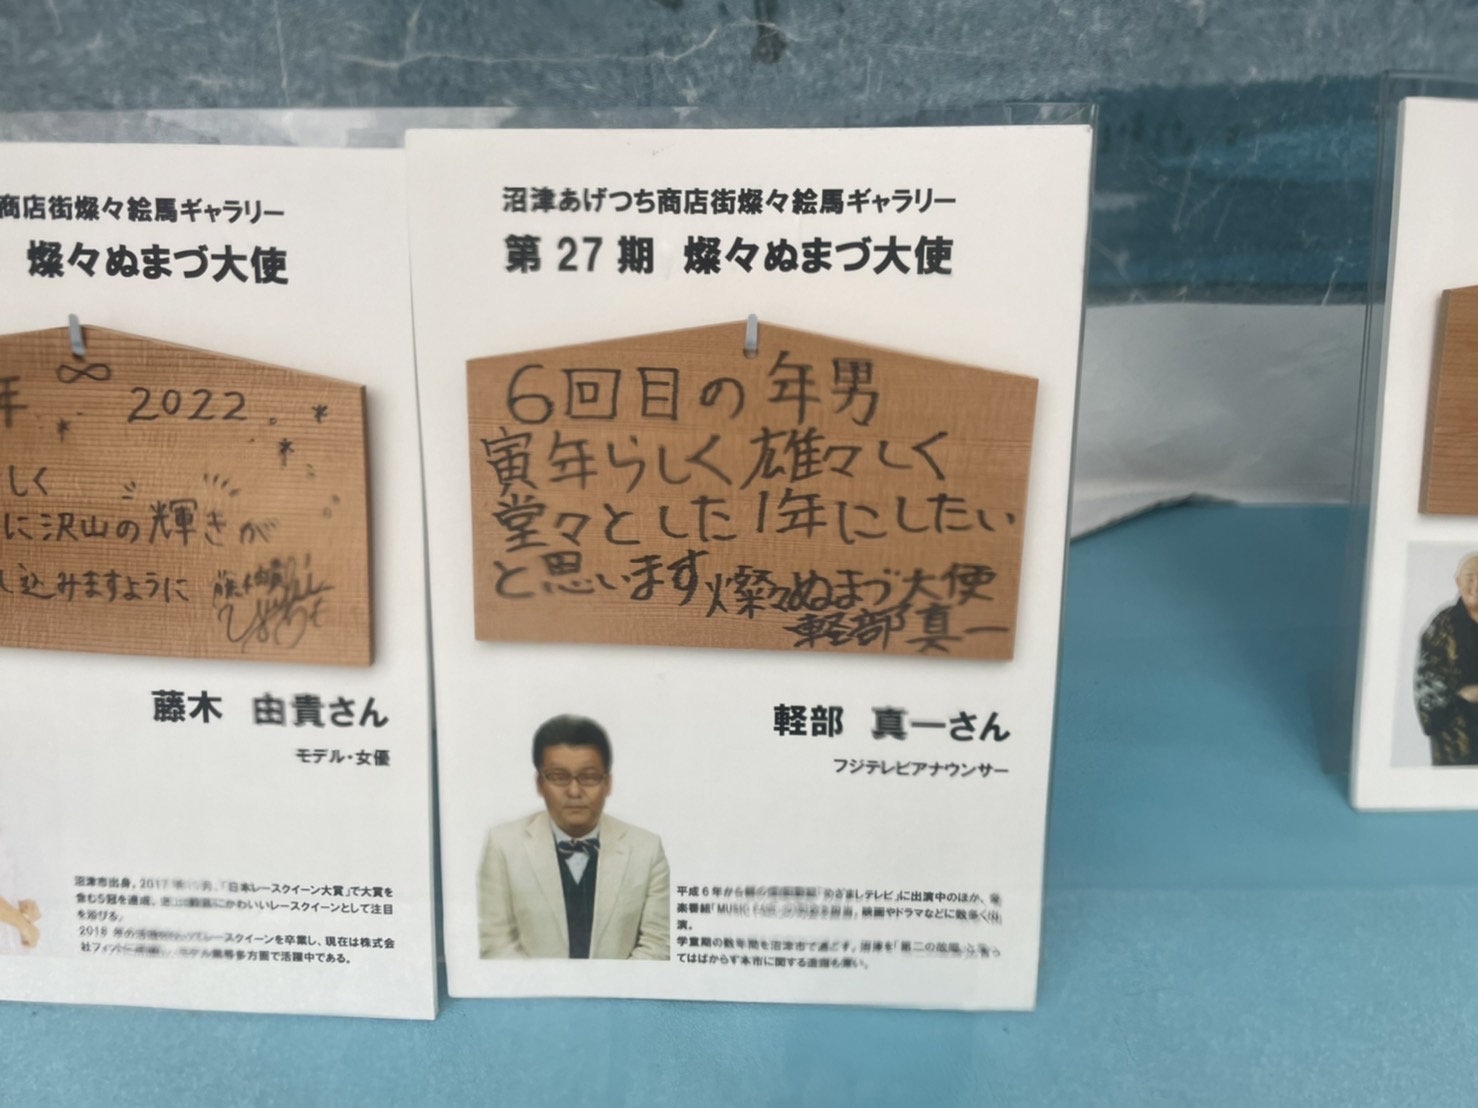 商店街燦々絵馬ギャラリー
燦々ぬまづ大使
年 ∞ 2022。
しく
に沢山の輝きが
し込みますように
藤木 由貴さん
モデル・女優
沼津市出身。2017「日本レースクイーン大賞」で大賞を
含む5冠を達成。かわいいレースクイーンとして注目
を浴びる。
2018 年のレースクイーンを卒業し、現在は株式会
社フィット多方面で活躍中である。
沼津あげつち商店街燦々絵馬ギャラリー
第 27 期 燦々ぬまづ大使
6回目の年男
寅年らしく雄々しく
堂々とした1年にしたい
と思います燦々ぬまづ大使
軽部真一
軽部 真一さん
フジテレビアナウンサー
平成6年から「めざましテレビ」に出演中のほか、
楽番組「MUSIC 映画やドラマなどに数多く出
演。
学童期の数年間を沼津市で過ごす。沼津を「第二の故郷」と言っ
てはばからず本市に関する造詣も深い。